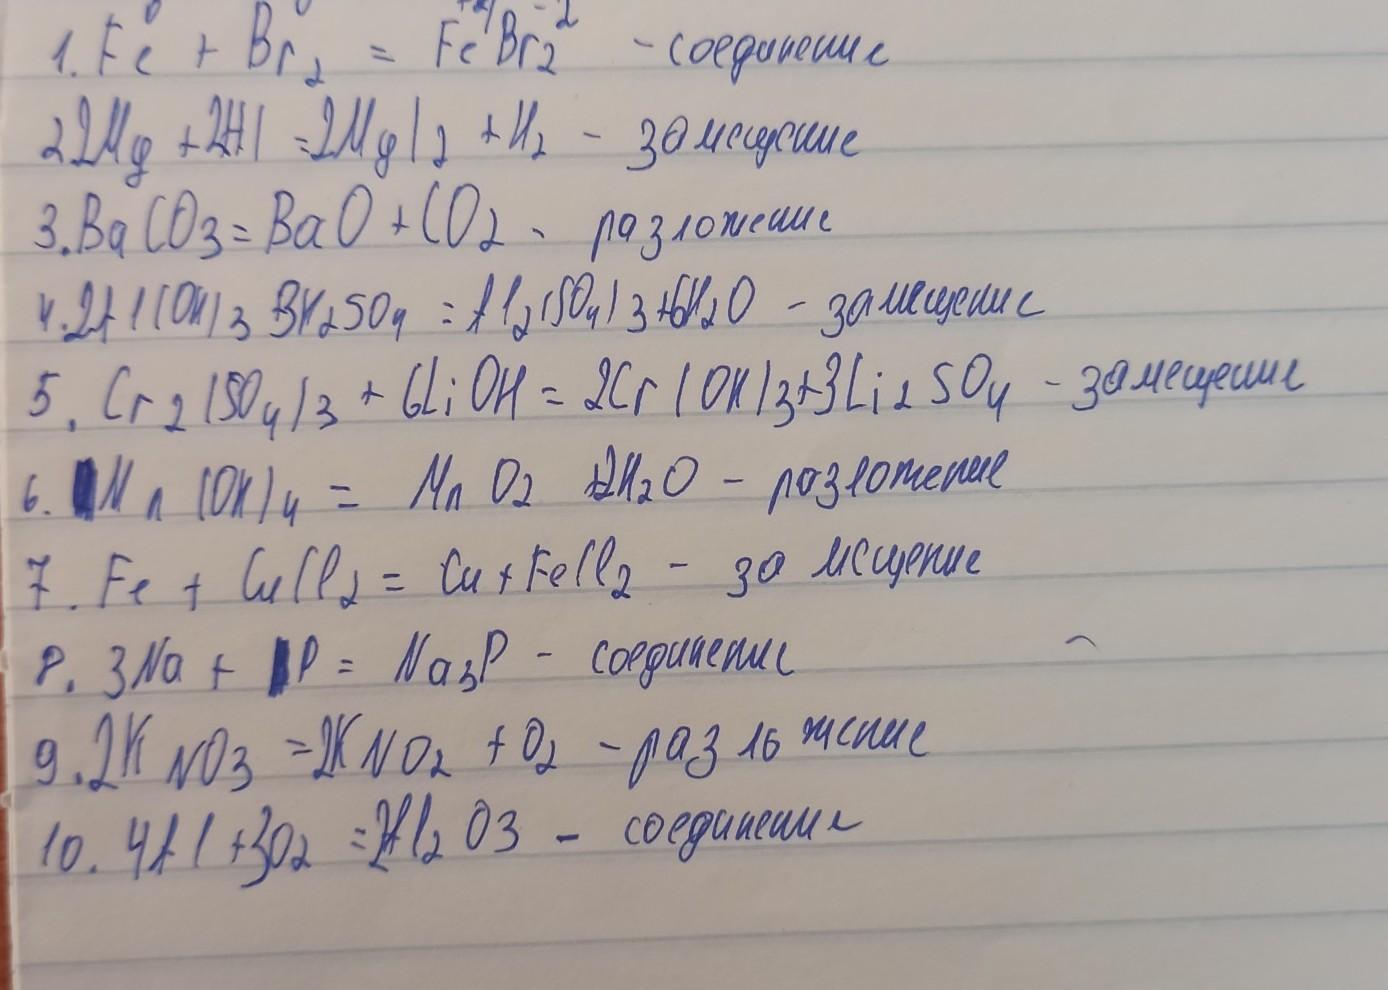 1. Fe + Br2 = FeBr2 - соединение
22Mg + 2HI = 2MgI2 + H2 - замещение
3. BaCO3 = BaO + CO2 - разложение
4. 2Al(OH)3 3H2SO4 = Al2(SO4)3 + 6H2O - замещение
5. Cr2(SO4)3 + 6LiOH = 2Cr(OH)3 + 3Li2SO4 - замещение
6. Mn(OH)4 = MnO2 + 2H2O - разложение
7. Fe + CuCl2 = Cu + FeCl2 - замещение
8. 3Na + P = Na3P - соединение
9. 2KNO3 = 2KNO2 + O2 - разложение
10. 4Al + 3O2 = 2Al2O3 - соединение